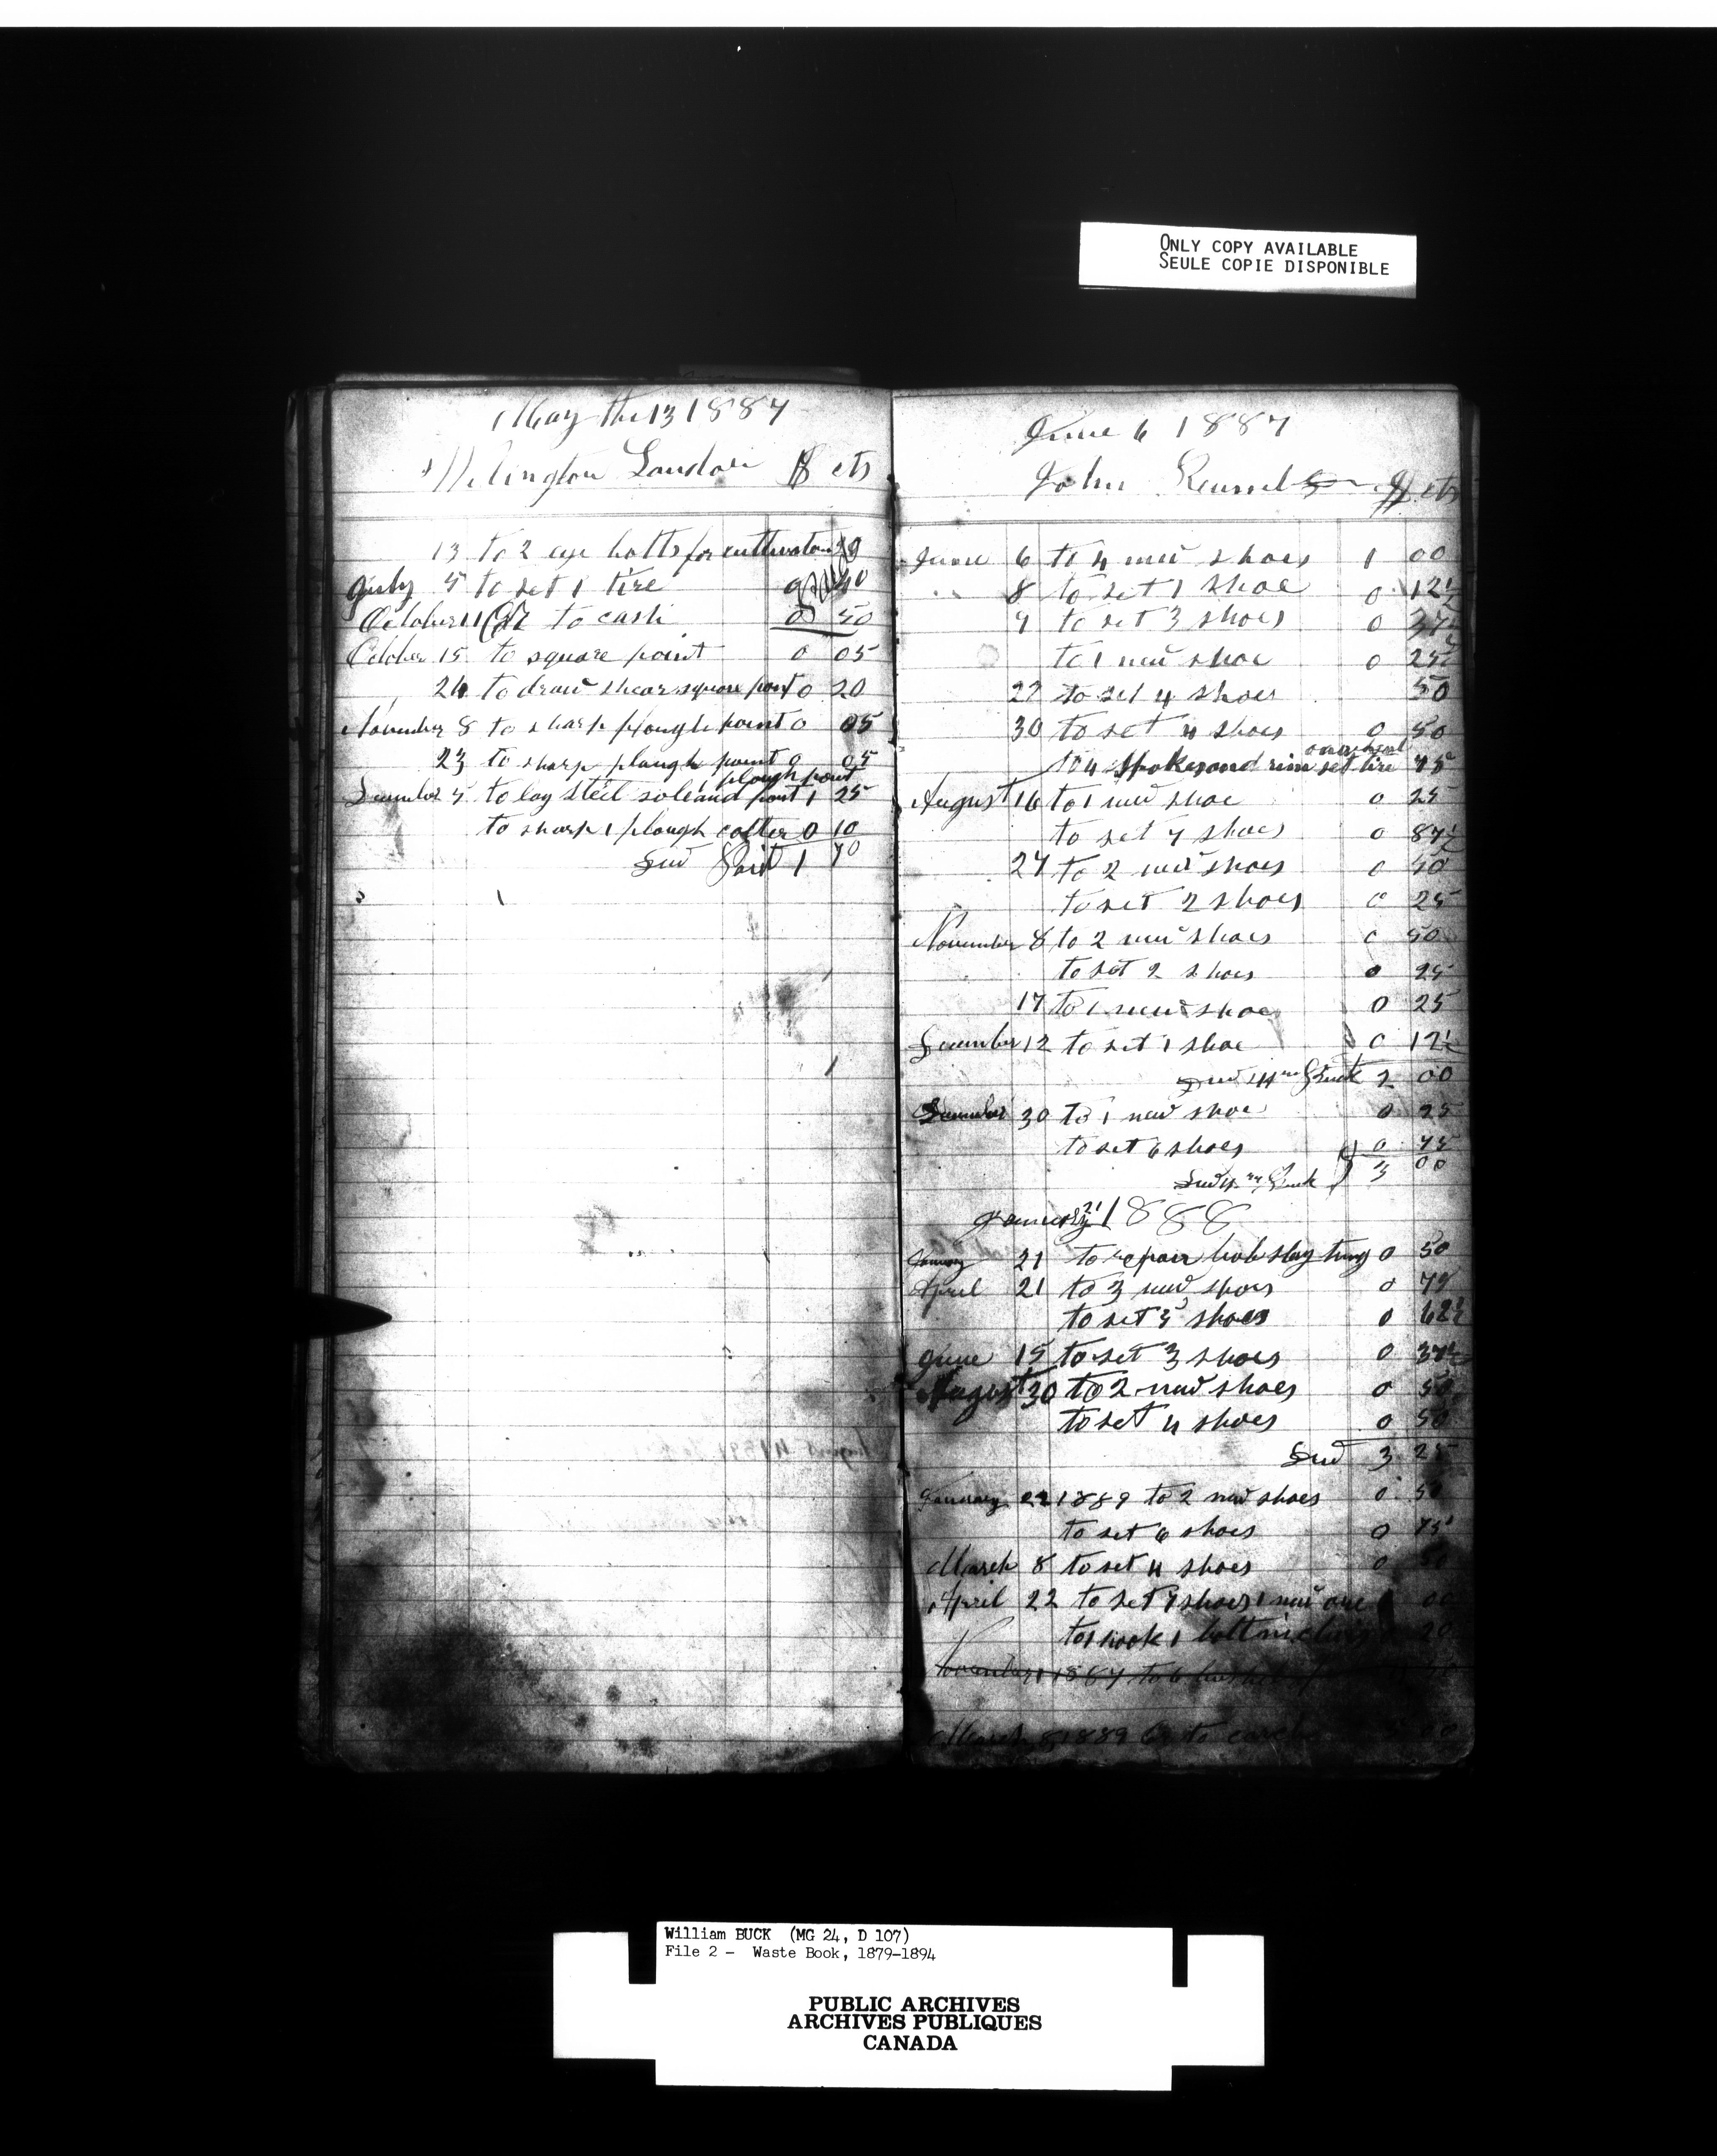 ONLY COPY AVAILABLE
SEULE COPIE DISPONIBLE
May the 13 1887
Welington $ cts
13 to 2 eye bolts for cultivator
July 5 to set 1 tire
October 11 to cash 0 50
October 15 to square point 0 05
24 to draw shear square point 0 20
November 8 to sharp plough point 0 05
23 to sharp plough point 0 05
plough point
December 5 to lay steel sole and point 1 25
to sharp 1 plough colter 0 10
Paid 1 70
June 6 1887
John $ cts
June 6 to 4 new shoes 1 00
8 to set 1 shoe 0 12½
9 to set 3 shoes 0 37½
to 1 new shoe 0 25
to set 4 shoes 50
30 to set 4 shoes 0 50
to 4 spokes and rim set tire 75
August 16 to 1 new shoe 0 25
to set 7 shoes 0 87½
27 to 2 new shoes 0 50
to set 2 shoes 0 25
November 8 to 2 new shoes 0 50
to set 2 shoes 0 25
17 to 1 new shoe 0 25
December 12 to set 1 shoe 0 12½
2 00
December 30 to 1 new shoe 0 25
to set 6 shoes 0 75
3 00
January 21 1888
January 21 to repair bob slay tung 0 50
April 21 to 3 new shoes 0 75
to set 5 shoes 0 62½
June 15 to set 3 shoes 0 37½
August 30 to 2 new shoes 0 50
to set 4 shoes 0 50
3 25
January 22 1889 to 2 new shoes 0 50
to set 6 shoes 0 75
March 8 to set 4 shoes 0 50
April 22 to set 7 shoes 1 new one 00
to 1 hook 1 bolt 20
November 1 1887 to 6
March 8 1889 to 00
William BUCK (MG 24, D 107)
File 2 - Waste Book, 1879-1894
PUBLIC ARCHIVES
ARCHIVES PUBLIQUES
CANADA